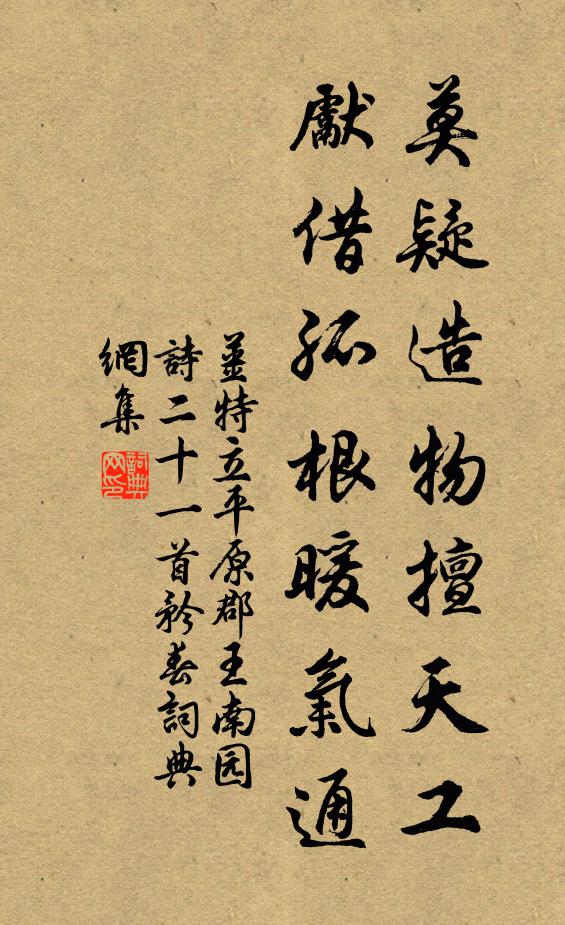 莫疑造物擅天工
獻借孤根暖氣通
姜特立平原郡王南园
詩二十一首矜春詞典
網集
詞典網印